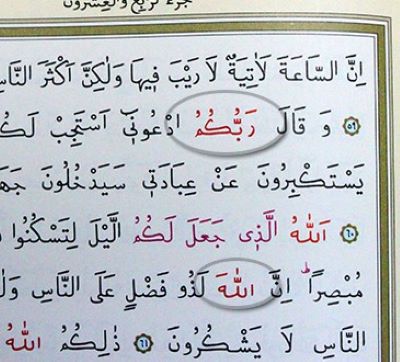 جزء الرابع والعشرون
اِنَّ السَّاعَةَ لَاٰتِيَةٌ لَا رَيْبَ فِيهَا وَلٰكِنَّ اَكْثَرَ النَّاسِ
﴿٥٩﴾ وَ قَالَ رَبُّكُمُ ادْعُونِٓى اَسْتَجِبْ لَكُمْ
يَسْتَكْبِرُونَ عَنْ عِبَادَتِى سَيَدْخُلُونَ جَهَ
﴿٦٠﴾ اَللّٰهُ الَّذِى جَعَلَ لَكُمُ الَّيْلَ لِتَسْكُنُوا
مُبْصِرًا اِنَّ اللّٰهَ لَذُو فَضْلٍ عَلَى النَّاسِ وَلٰ
النَّاسِ لَا يَشْكُرُونَ ﴿٦١﴾ ذٰلِكُمُ اللّٰهُ